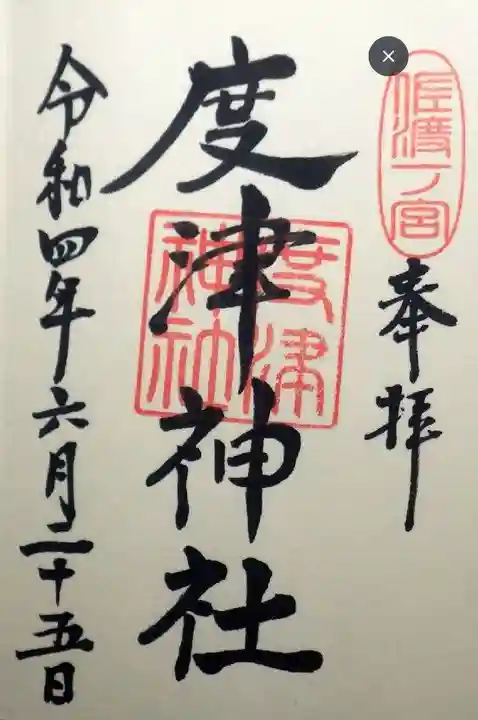 佐渡一ノ宮
奉拝
度津神社
度津
神社
令和四年六月二十五日